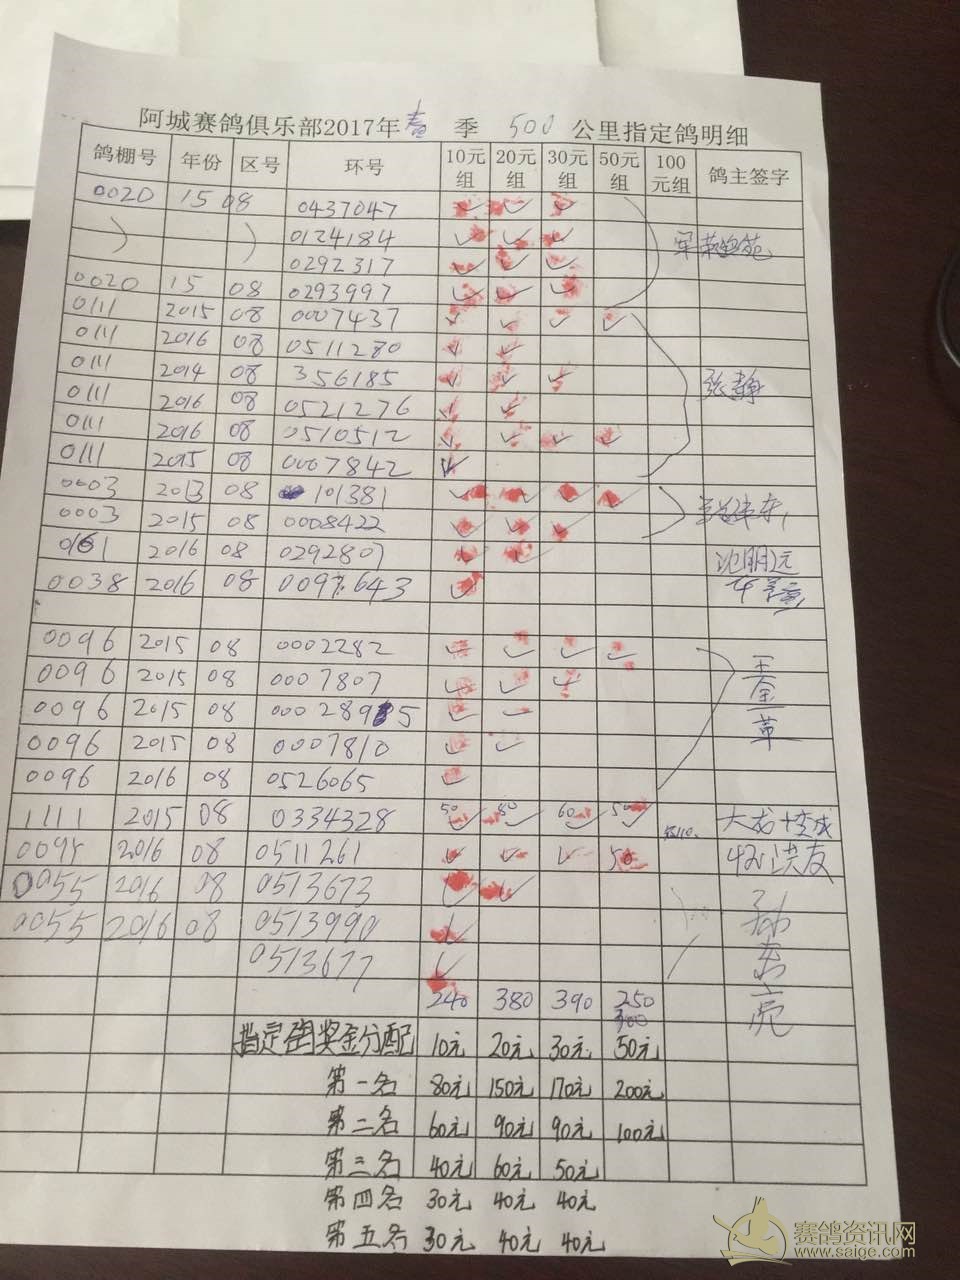 阿城赛鸽俱乐部2017年春季 500 公里指定鸽明细
鸽棚号 年份 区号 环号 10元组 20元组 30元组 50元组 100元组 鸽主签字
0020 15 08 0437047 ✓ ✓ ✓
0124184 ✓ ✓ ✓
0292317 ✓ ✓ ✓
0020 15 08 0293997 ✓ ✓ ✓
0111 2015 08 0007437 ✓ ✓ ✓ ✓
0111 2016 08 0511280 ✓ ✓
0111 2014 08 356185 ✓ ✓ ✓ 张静
0111 2016 08 0521276 ✓ ✓
0111 2016 08 0510512 ✓ ✓ ✓ ✓
0111 2015 08 0007842 ✓
0003 2013 08 101381 ✓ ✓ ✓ ✓
0003 2015 08 0008422 ✓ ✓ ✓
0161 2016 08 0292807 ✓ ✓ 沈明远
0038 2016 08 0097643 ✓
0096 2015 08 0002282 ✓ ✓ ✓ ✓
0096 2015 08 0007807 ✓ ✓ ✓ 王金革
0096 2015 08 0002895 ✓ ✓
0096 2015 08 0007810 ✓ ✓
0096 2016 08 0526065 ✓
1111 2015 08 0334328 50 ✓ 80 ✓ 60 ✓ 50 ✓
009 2016 08 0511261 ✓ ✓ ✓ 50 洪友
0055 2016 08 0513673 ✓ ✓
0055 2016 08 0513990 ✓
0513677 ✓
240 380 390 250
300
指定鸽奖金分配 10元 20元 30元 50元
第一名 80元 150元 170元 200元
第二名 60元 90元 90元 100元
第三名 40元 60元 50元
第四名 30元 40元 40元
第五名 30元 40元 40元
赛鸽资讯网
www.saige.com